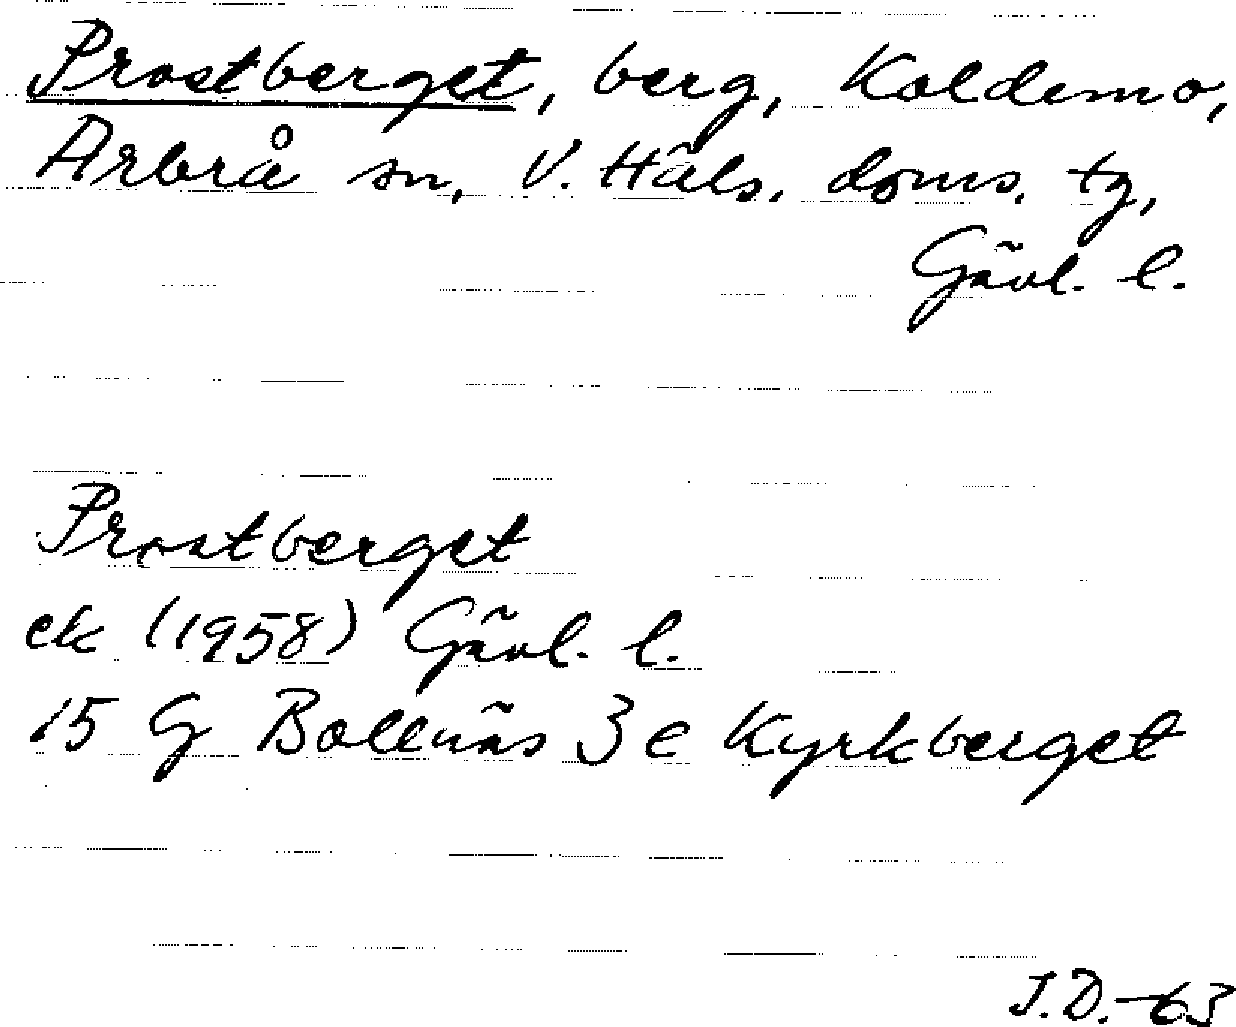 Prostberget, berg, Koldemo,
Arbrå sn, V. Häls. doms. tg,
Gävl. l.
Prostberget
ek (1958) Gävl. l.
15 G Bollnäs 3 e Kyrkberget
J.D.-63